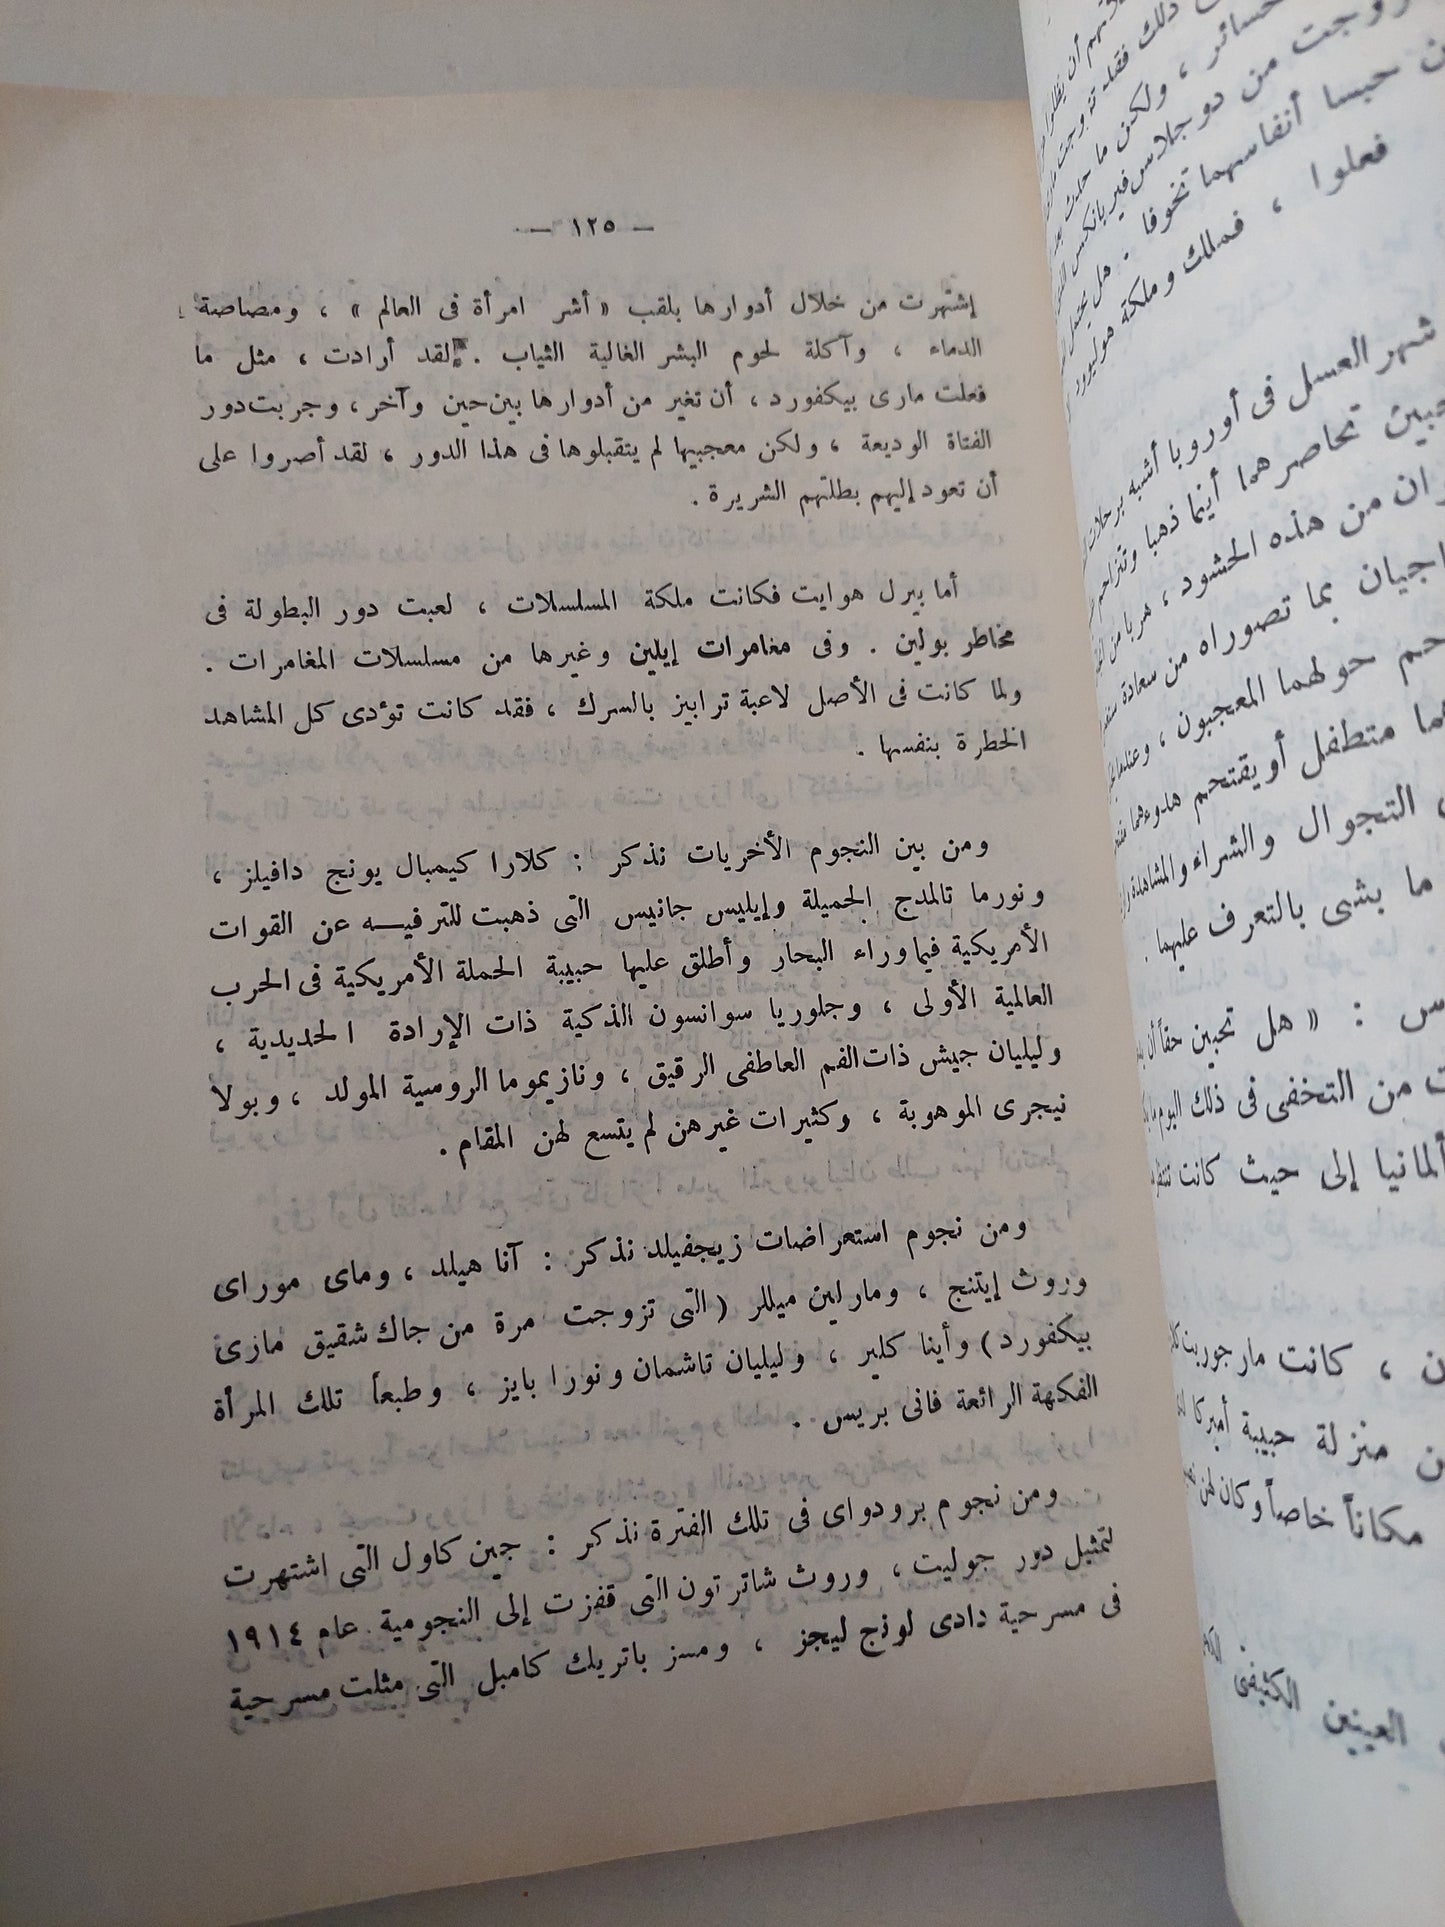 — ١٢٥ —
إشتهرت من خلال أدوارها بلقب « أشر امرأة فى العالم » ، ومصاصة
الدماء ، وآكلة لحوم البشر الغالية الثياب . لقد أرادت ، مثل ما
فعلت مارى بيكفورد ، أن تغير من أدوارها بين حين وآخر ، وجربت دور
الفتاة الوديعة ، ولكن معجبيها لم يتقبلوها فى هذا الدور ، لقد أصروا على
أن تعود إليهم بطلتهم الشريرة .
أما بيرل هوايت فكانت ملكة المسلسلات ، لعبت دور البطولة فى
مخاطر بولين . وفى مغامرات إيلين وغيرها من مسلسلات المغامرات .
ولما كانت فى الأصل لاعبة ترابيز بالسرك ، فقد كانت تؤدى كل المشاهد
الخطرة بنفسها .
ومن بين النجوم الأخريات نذكر : كلارا كيمبال يونج دافيلز ،
ونورما تالمدج الجميلة وإيليس جانيس التى ذهبت للترفيـــه عن القوات
الأمريكية فيما وراء البحار وأطلق عليها حبيبة الحملة الأمريكية فى الحرب
العالمية الأولى ، وجلوريا سوانسون الذكية ذات الإرادة الحديدية ،
وليليان جيش ذات الفم العاطفى الرقيق ، ونازيموما الروسية المولد ، وبولا
نيجرى الموهوبة ، وكثيرات غيرهن لم يتسع لهن المقام .
ومن نجوم استعراضات زيجفيلد نذكر : آنا هيلد ، وماى موراى
وروث إيتنج ، ومارلين ميللر ( التى تزوجت مرة من جاك شقيق مارى
بيكفورد ) وأينا كلير ، وليليان تاشمان ونورا بايز ، وطبعاً تلك المرأة
الفكهة الرائعة فانى بريس .
ومن نجوم برودواى فى تلك الفترة نذكر : جين كاول التى اشتهرت
لتمثيل دور جوليت ، وروث شاترتون التى قفزت إلى النجومية عام ١٩١٤
فى مسرحية دادى لونج ليجز ، ومسز باتريك كامبل التى مثلت مسرحية
ذلك فقد تزوجت
خسائر ، ولكن ما حدث
من دوجلاس فيربانكس
حبسا أنفاسهما تخوفا . هل
فعلوا ، فملك وملكة هوليوود
شهر العسل فى أوروبا أشبه برحلات
تحاصرهما أينما ذهبا وتتزاحم
من هذه الحشود ، هربا من
بما تصوراه من سعادة
حولهما المعجبون ، وعندما
متطفل أو يقتحم هدوءهما
التجوال والشراء والمشاهدة
ما يشى بالتعرف عليهما .
: « هل تحبين حقاً أن
من التخفى فى ذلك اليوم
ألمانيا إلى حيث كانت
، كانت مارجوريت
منزلة حبيبة أميركا
مكاناً خاصاً وكان لهن
العينين